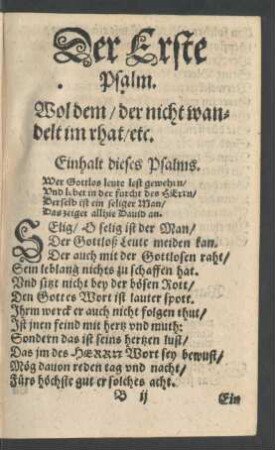 Der Erste
Psalm.
Wol dem / der nicht wan-
delt im rhat / etc.
Einhalt dieses Psalms.
Wer Gottlos leute lest gewehrn /
Vnd lebet in der furcht des HErrn /
Derselb ist ein seliger Man /
Das zeiget allhie Dauid an.
SElig / O selig ist der Man /
Der Gottloß Leute meiden kan.
Der auch mit der Gottlosen raht /
Sein leblang nichts zu schaffen hat.
Vnd sitzt nicht bey der bösen Rott /
Den Gottes Wort ist lauter spott.
Ihrm werck er auch nicht folgen thut /
Ist jnen feind mit hertz vnd muth:
Sondern das ist seins hertzen lust /
Das jm des HERRN Wort sey bewust /
Mög dauon reden tag vnd nacht /
Fürs höchste gut er solches acht.
B ij Ein